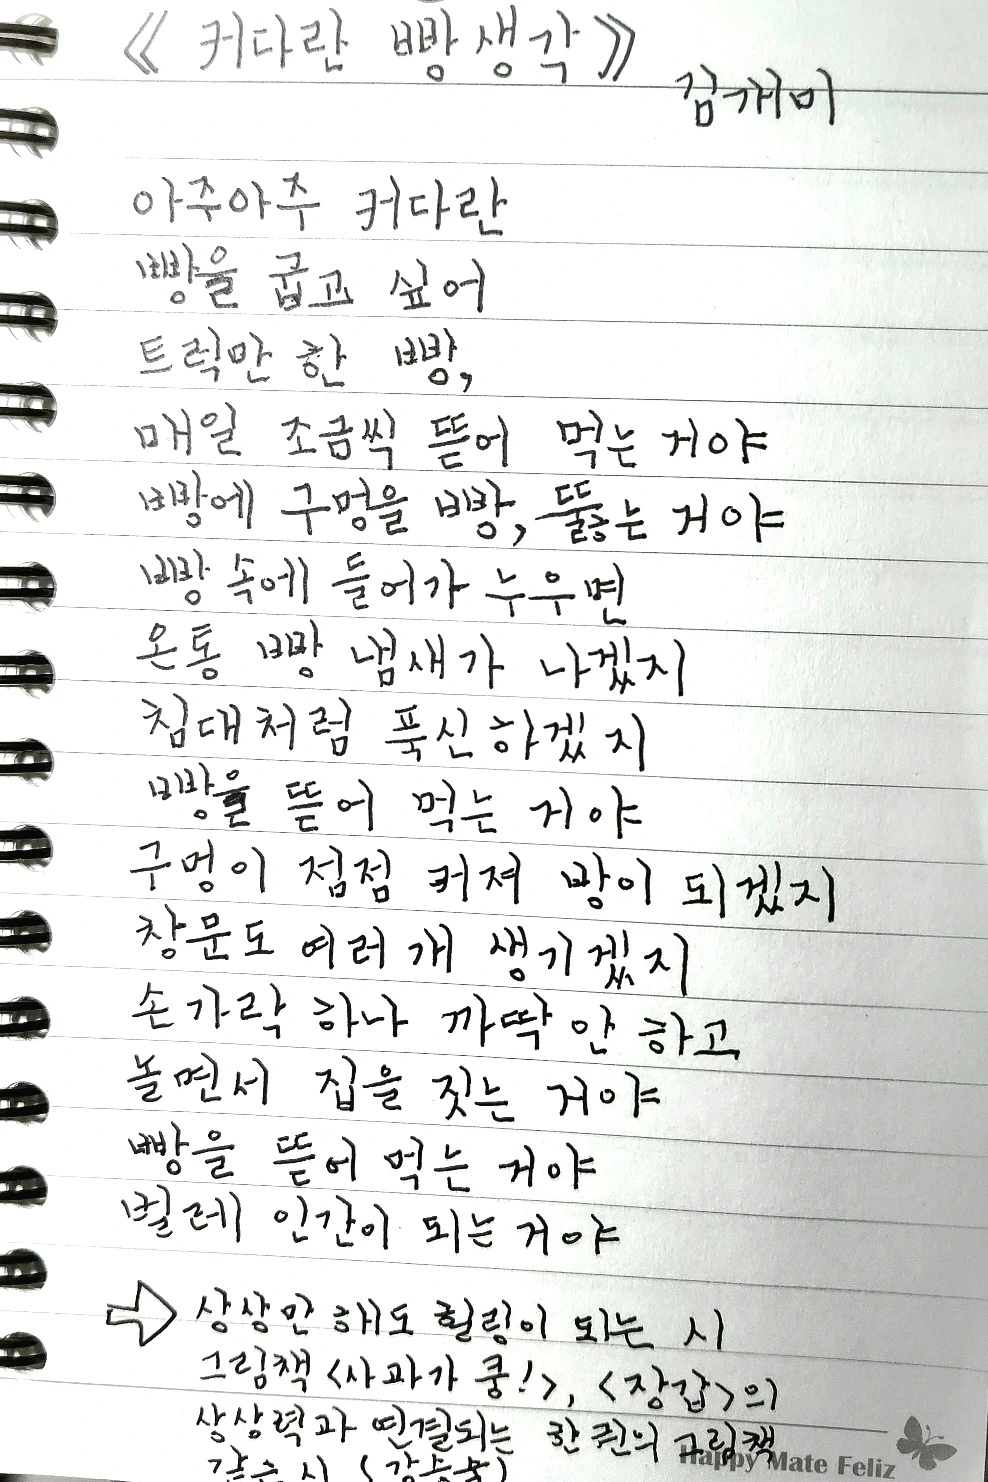 《 커다란 빵 생각 》
김개미
아주아주 커다란
빵을 굽고 싶어
트럭만 한 빵,
매일 조금씩 뜯어 먹는 거야
빵에 구멍을 빵, 뚫는 거야
빵 속에 들어가 누우면
온통 빵 냄새가 나겠지
침대처럼 푹신하겠지
빵을 뜯어 먹는 거야
구멍이 점점 커져 방이 되겠지
창문도 여러 개 생기겠지
손가락 하나 까딱 안 하고
놀면서 집을 짓는 거야
빵을 뜯어 먹는 거야
벌레 인간이 되는 거야
상상만 해도 힐링이 되는 시
그림책 <사과가 쿵!>, <장갑>의
상상력과 연결되는 한 권의 그림책
같은 시
Happy Mate Feliz